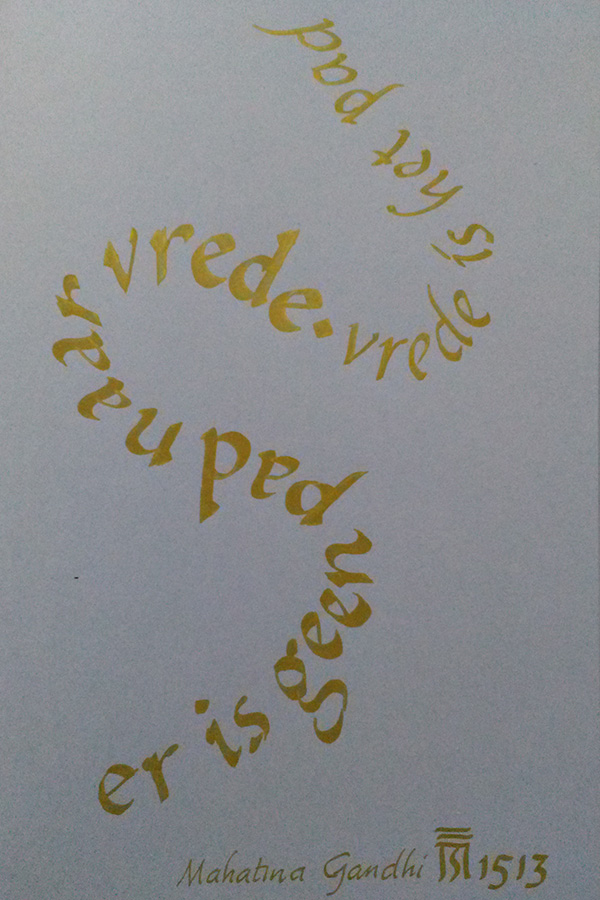 er is geen pad naar vrede. vrede is het pad
Mahatma Gandhi 1513